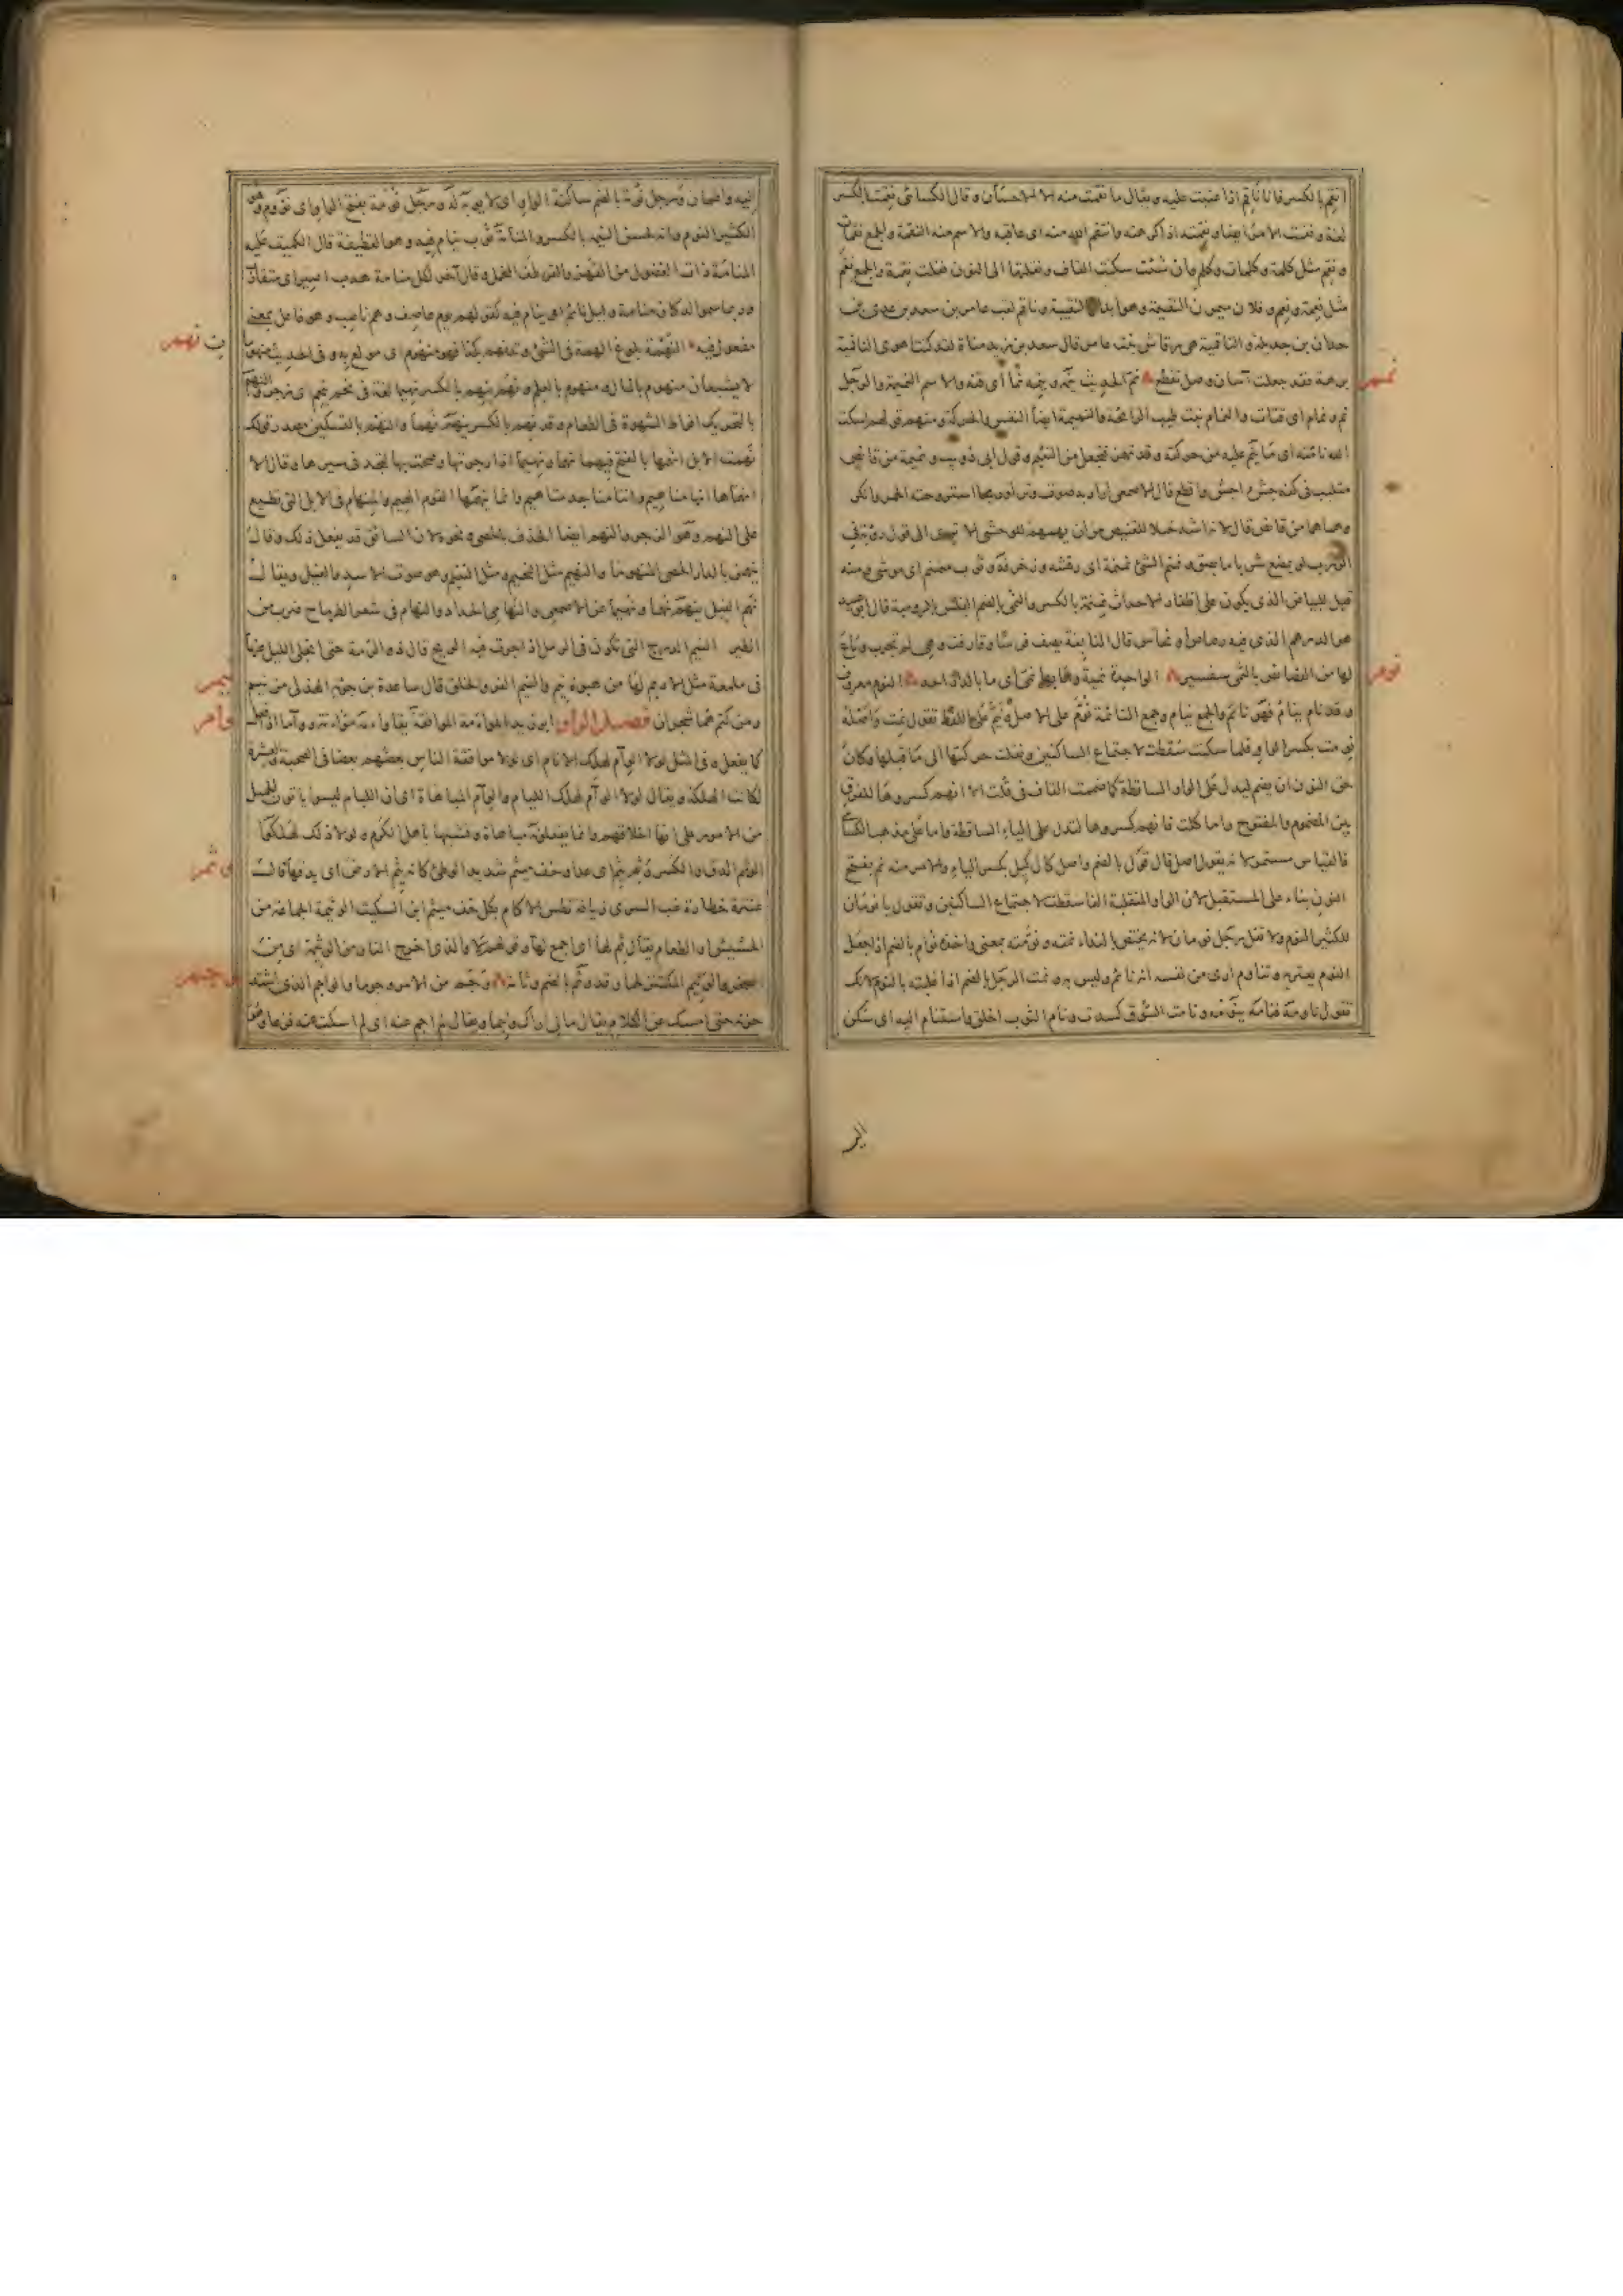 انقم بالكسر فانا ناقم اذا عتبت عليه ويقال ما نقمت منه الا الاحسان وقال الكسائى نقمت بالكسر
لغة ونقمت الامر ايضا ونقمته اذا كرهته وانتقم الله منه اى عاقبه والاسم منه النقمة والجمع نقمات
ونقم مثل كلمة وكلمات وكلم وان شئت سكنت القاف ونقلتها الى النون فقلت نقمة والجمع نقم
مثل نعمة ونعم وفلان ميمون النقيمة وهو ابدال النقيبة وناقم لقب عامر بن سعد بن عدى بن
جدان بن جديلة والناقمية هى رقاش بنت عامر قال سعد بن زيد مناة لقد كنت اهوى الناقمية
برهة فقد جعلت آسان وصل تقطع نم الحديث ينمه وينمه نما اى قته والاسم النميمة والرجل
نم ونمام اى قتات والنمام نبت طيب الرائحة والنميمة ايضا الهمس والحركة ومنه قولهم اسكت
الله نامته اى ما ينم عليه من حركته وقد تهمز فتجعل من النئيم وقول ابى ذؤيب ونميمة من قانص
متلبب فى كفه جشء اجش واقطع قال الاصمعى اراد به صوت وتر او ريحا استروحته الحمر وانكر
وهماهما من قانص قال لانه اشد ختلا للقنيص من ان يهمهم للوحش الا ترى الى قول رؤبة فى
الزرب لو يمضغ شريا ما بصق ونمنم الشئ نمنمة اى رقشه وزخرفه وثوب منمنم اى موشى ومنه
قيل للبياض الذى يكون على اظفار الاحداث نمنمة بالكسر والنمى بالضم الفلس بالرومية قال ابو عبيد
هو الدرهم الذى فيه رصاص او نحاس قال النابغة يصف فرسا وقارفت وهى لم تجرب وباع
لها من الفصافص بالنمى سفسير الواحدة نمية وما بها نمى اى ما بالدار احد النوم معروف
وقد نام ينام فهو نائم والجمع نيام وجمع النائمة نوم على الاصل ونيم على اللفظ تقول نمت واصله
نومت بكسر الواو فلما سكنت سقطت لاجتماع الساكنين ونقلت حركتها الى ما قبلها وكان
حق النون ان يضم ليدل على الواو الساقطة كما ضممت القاف فى قلت الا انهم كسروها للفرق
بين المضموم والمفتوح واما كلت فانهم كسروها لتدل على الياء الساقطة واما على مذهب الكسائى
فالقياس مستمر لانه يقول اصل قال قول بالضم واصل كال كيل بكسر الياء والامر منه نم بفتح
النون بناء على المستقبل لان الواو المنقلبة الفا سقطت لاجتماع الساكنين وتقول يا نومان
للكثير النوم ولا تقل رجل نومان لانه يختص بالنداء نمته ونومته بمعنى واخذه نوام بالضم اذا جعل
النوم يعتريه وتناوم ارى من نفسه انه نائم وليس به ونمت الرجل بالضم اذا غلبته بالنوم لانك
تقول ناومه فنامه ينومه ونامت السوق كسدت ونام الثوب اخلق واستنام اليه اى سكن
نمم
نوم
اليه
اليه واطمأن ورجل نومة بالضم ساكنة الواو اى لا يؤبه له ورجل نومة بفتح الواو اى نؤوم وهو
الكثير النوم وانه لحسن النيمة بالكسر والمنامة ثوب ينام فيه وهو القطيفة قال الكميت عليه
المنامة ذات الفضول من القهز والقرطف المخمل وقال آخر لكل منامة هدب اصير اى متقارب
وربما سموا الدكان منامة وليل نائم اى ينام فيه كقولهم يوم عاصف وهم ناصب وهو فاعل بمعنى
مفعول فيه النهمة بلوغ الهمة فى الشئ وقد نهم بكذا فهو منهوم اى مولع به وفى الحديث منهومان
لا يشبعان منهوم بالمال ومنهوم بالعلم ونهم ينهم بالكسر نهيما لغة فى نحم ينحم اى زحر والنهم
بالتحريك افراط الشهوة فى الطعام وقد نهم بالكسر ينهم نهما والنهم بالتسكين مصدر قولك
نهمت الابل انهمها بالفتح فيهما نهما ونهيما اذا زجرتها وصحت بها لتجد فى سيرها وقال الا
انهماها انها مناهيم واننا مناجد متاهيم وانما ينهمها القوم الهيم والمنهام فى الابل التى تطيع
على النهم وهو الزجر والنهم ايضا الخذف بالحصى ونحوه لان السائق قد يفعل ذلك وقال
ينهمن بالدار الحصى المنهوما والنهيم مثل النحيم ومثل النئيم وهو صوت الاسد والفيل ويقال
نهم الفيل ينهم نهما ونهيما عن الاصمعى والنهامى الحداد والنهام فى شعر الطرماح ضرب من
الطير النيم الدرج التى تكون فى الرمل اذا جرت فيه الريح قال ذو الرمة حتى انجلى الليل عنا
فى ملمعة مثل الاديم لها من هبوة نيم والنيم الفرو الخلق قال ساعدة بن جؤية الهذلى من نيم
ومن كتم هما شجران فصل الواو ابو زيد المواءمة الموافقة يقال واءمته مواءمة ووآما اذا فعلت
كما يفعل وفى المثل لولا الوئام لهلك الانام اى لولا موافقة الناس بعضهم بعضا فى الصحبة والعشرة
لكانت الهلكة ويقال لولا الوئام لهلك اللئام والوئام المباهاة اى ان اللئام ليسوا ياتون الجميل
من الامور على انها اخلاقهم وانما يفعلونه مباهاة وتشبها باهل الكرم ولولا ذلك لهلكوا
الوثم الدق والكسر وثم يثم اى عدا وخف ميثم شديد الوطئ كانه يثم الارض اى يدقها قال
عنترة خطارة غب السرى زيافة تطس الاكام بكل خف ميثم ابن السكيت الوثيمة الجماعة من
الحشيش او الطعام يقال ثم لها اى اجمع لها وقولهم لا والذى اخرج النار من الوثيمة اى من
الصخر والوثيم المكتنز لحما وقد وثم بالضم وثامة وجم من الامر وجوما والواجم الذى اشتد
حزنه حتى امسك عن الكلام يقال مالى اراك واجما ويقال لم اجم عنه اى لم اسكت عنه فزعا
نهم
نيم
وأم
وثم
وجم